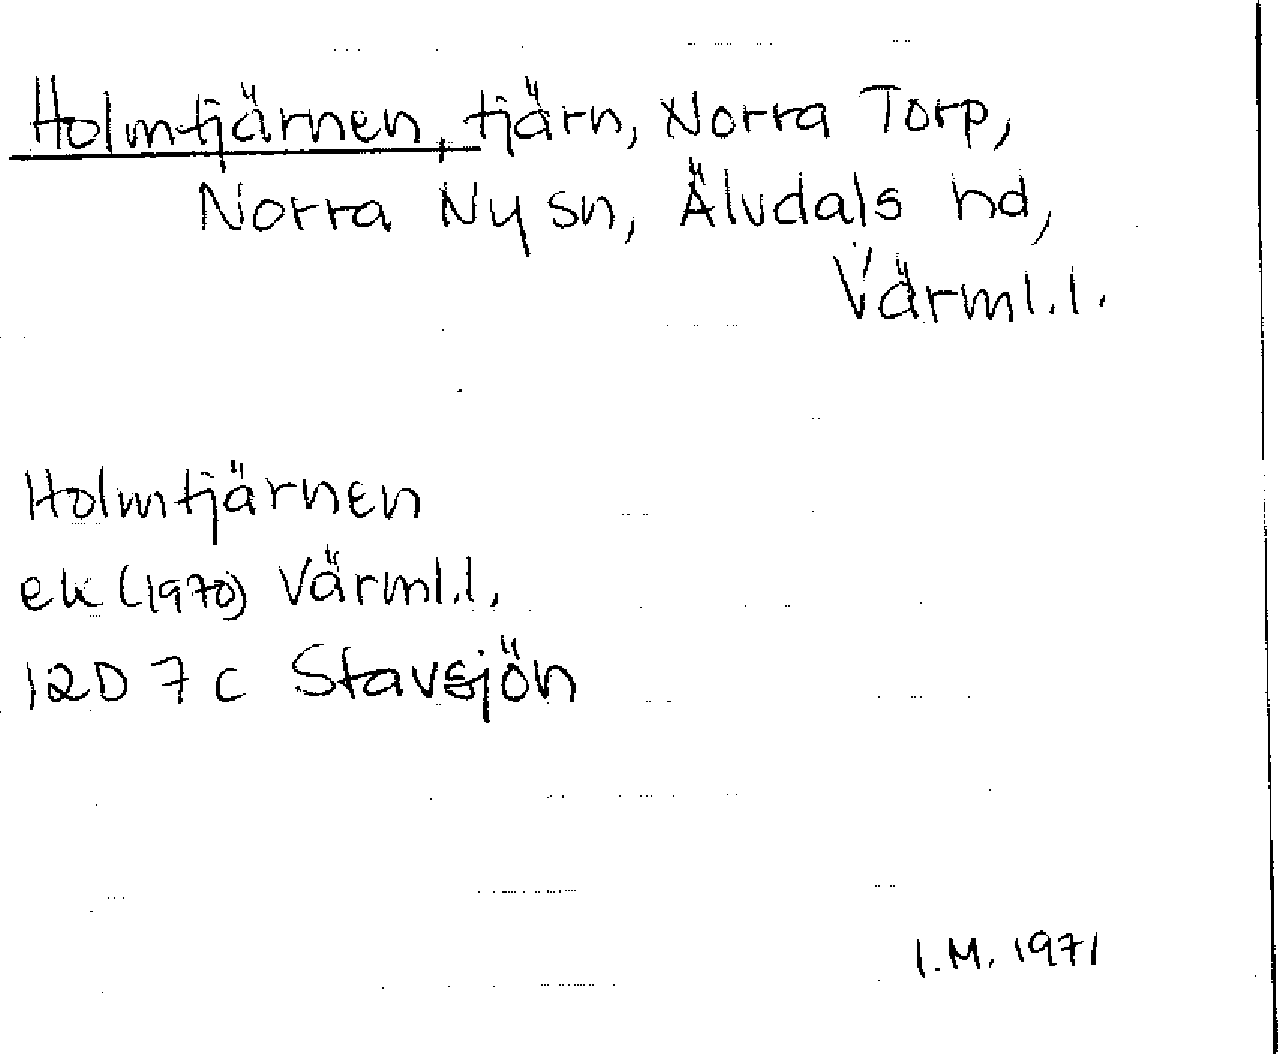 Holmtjärnen, tjärn, Norra Torp,
Norra Ny sn, Älvdals hd,
Värml.l.
Holmtjärnen
ek (1970) Värml.l,
12D 7 c Stavsjön
I.M. 1971